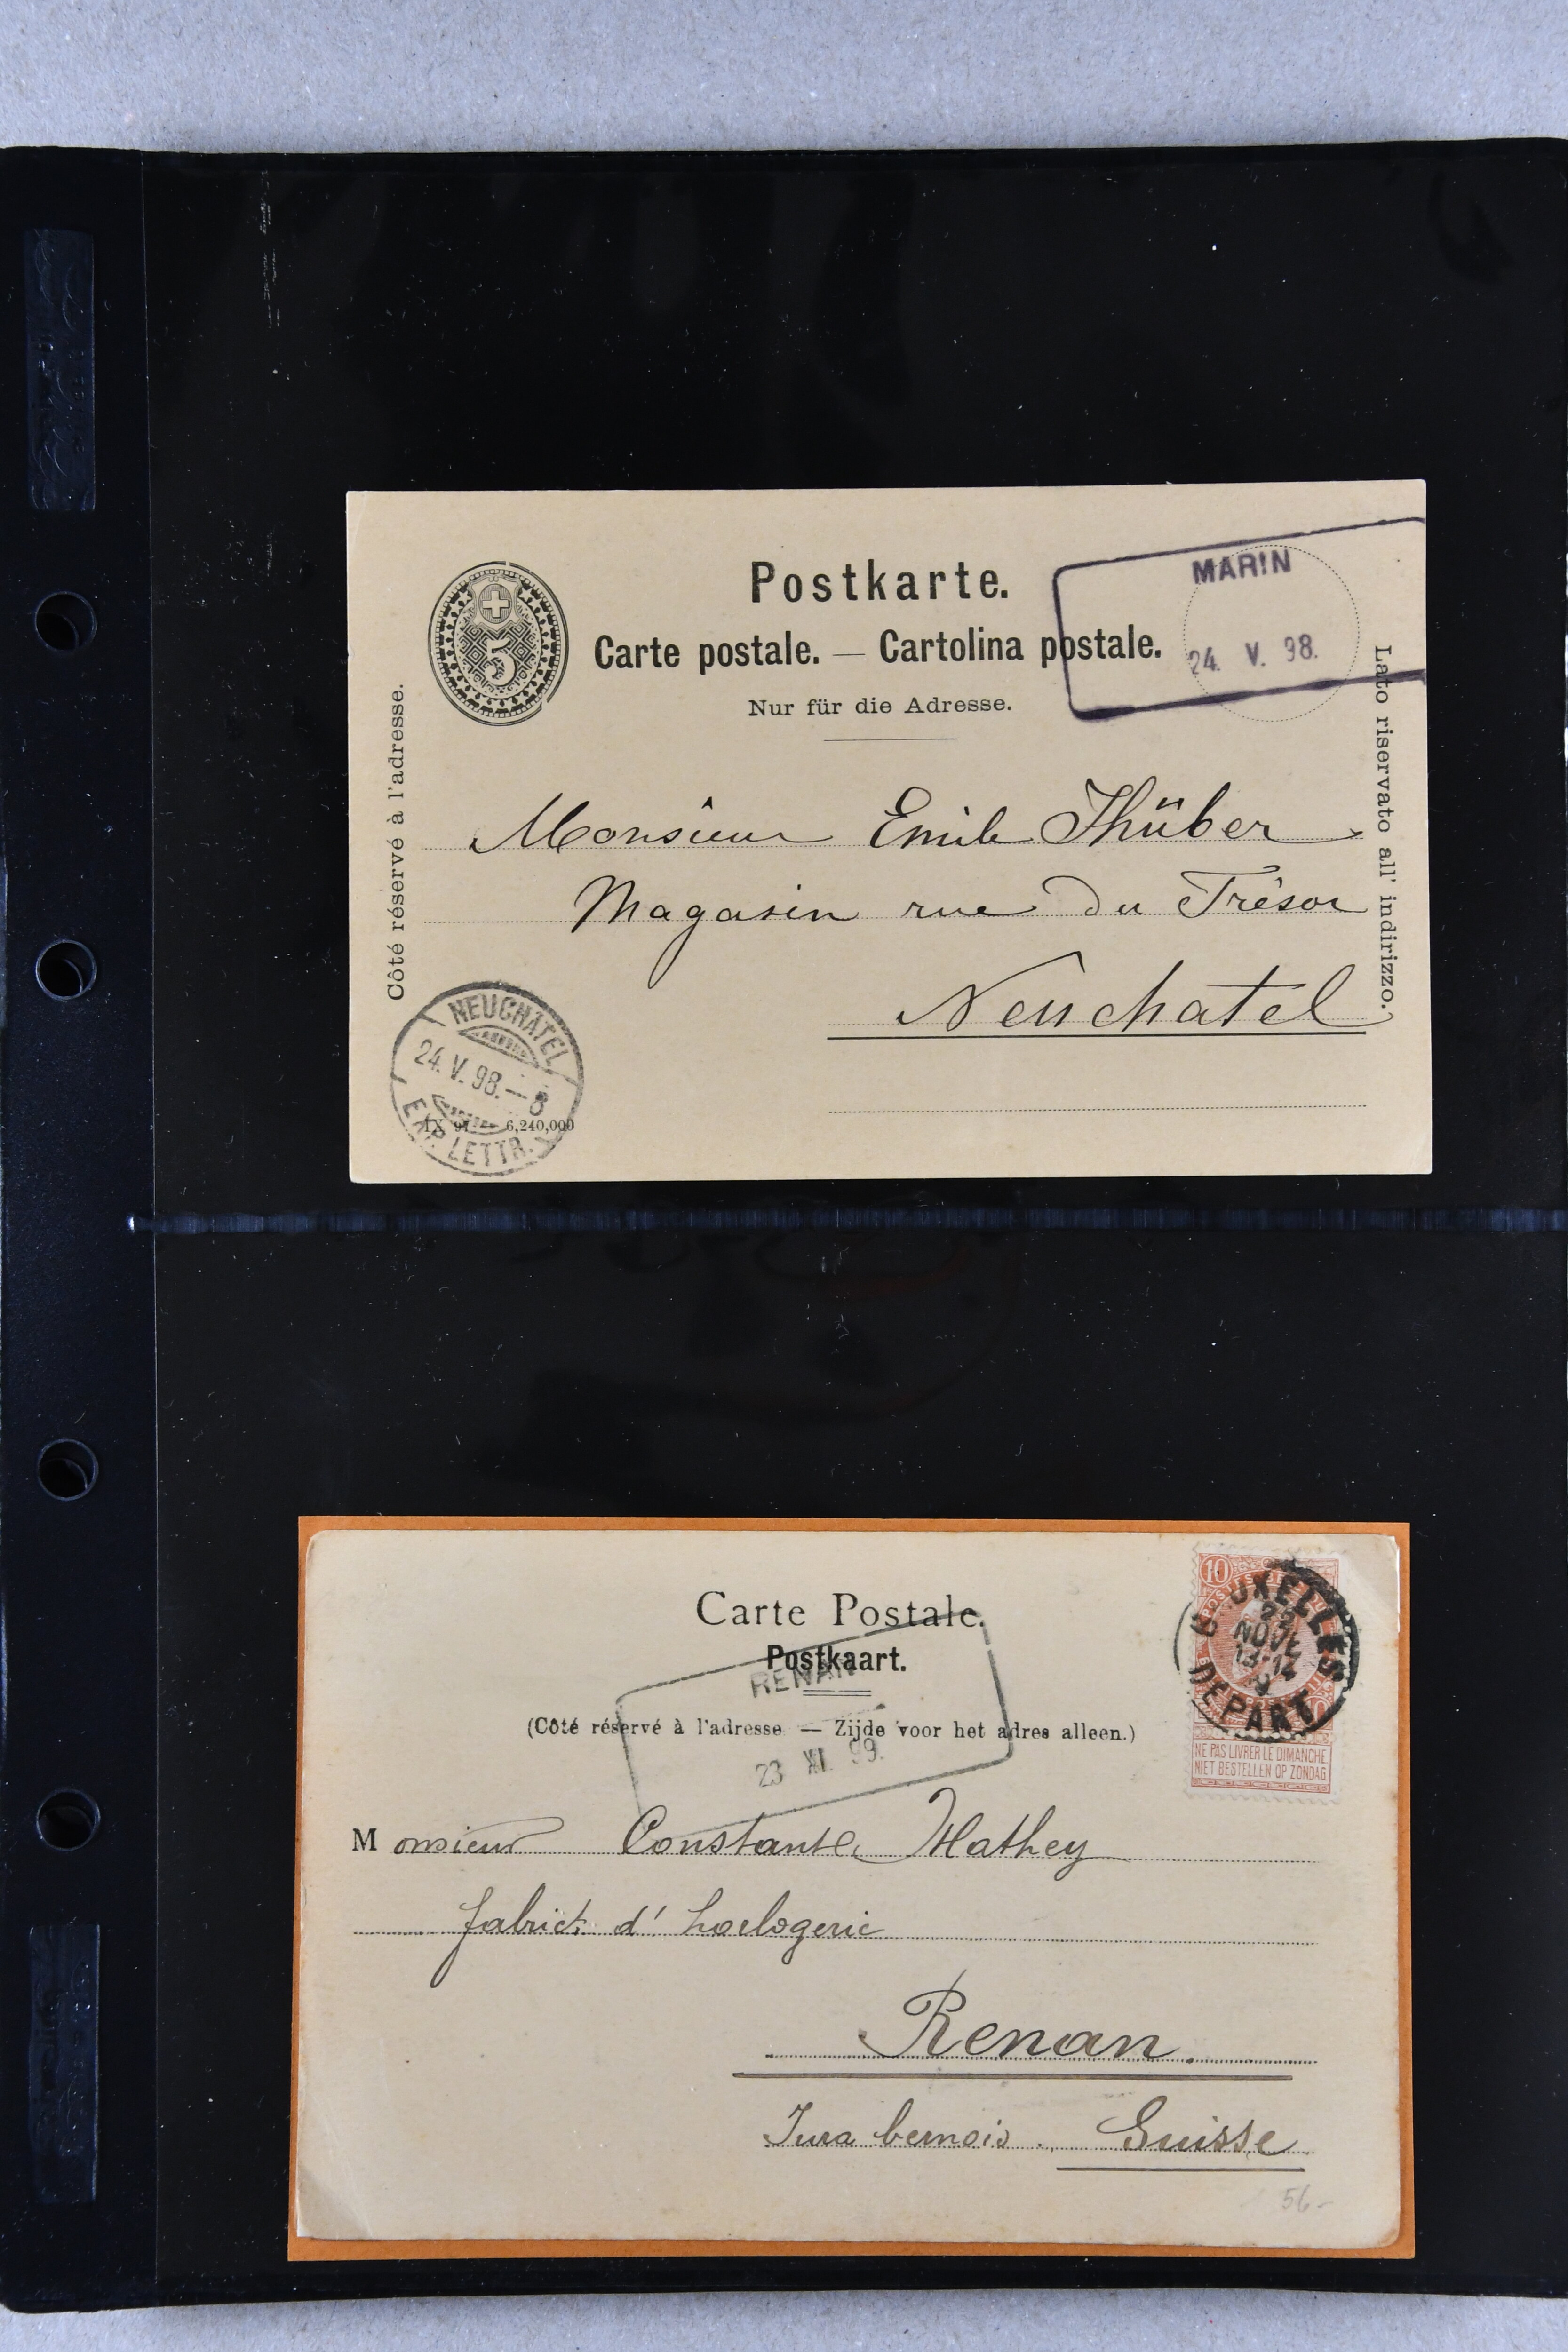 Postkarte.
Carte postale. — Cartolina postale.
Nur für die Adresse.
5
MARIN
24. V. 98.
Côté réservé à l'adresse.
Lato riservato all' indirizzo.
Monsieur Emile Thüber
Magasin rue du Trésor
Neuchatel
NEUCHATEL
24. V. 98. — 8
EXP. LETTR.
IX 97 6,240,000
Carte Postale.
Postkaart.
(Côté réservé à l'adresse — Zijde voor het adres alleen.)
RENAN
23 XI 99.
10
BRUXELLES
22
NOVE
DEPART
NE PAS LIVRER LE DIMANCHE
NIET BESTELLEN OP ZONDAG
Monsieur Constante Mathey
fabrict. d'horlogerie
Renan.
Jura bernois. Suisse
56-